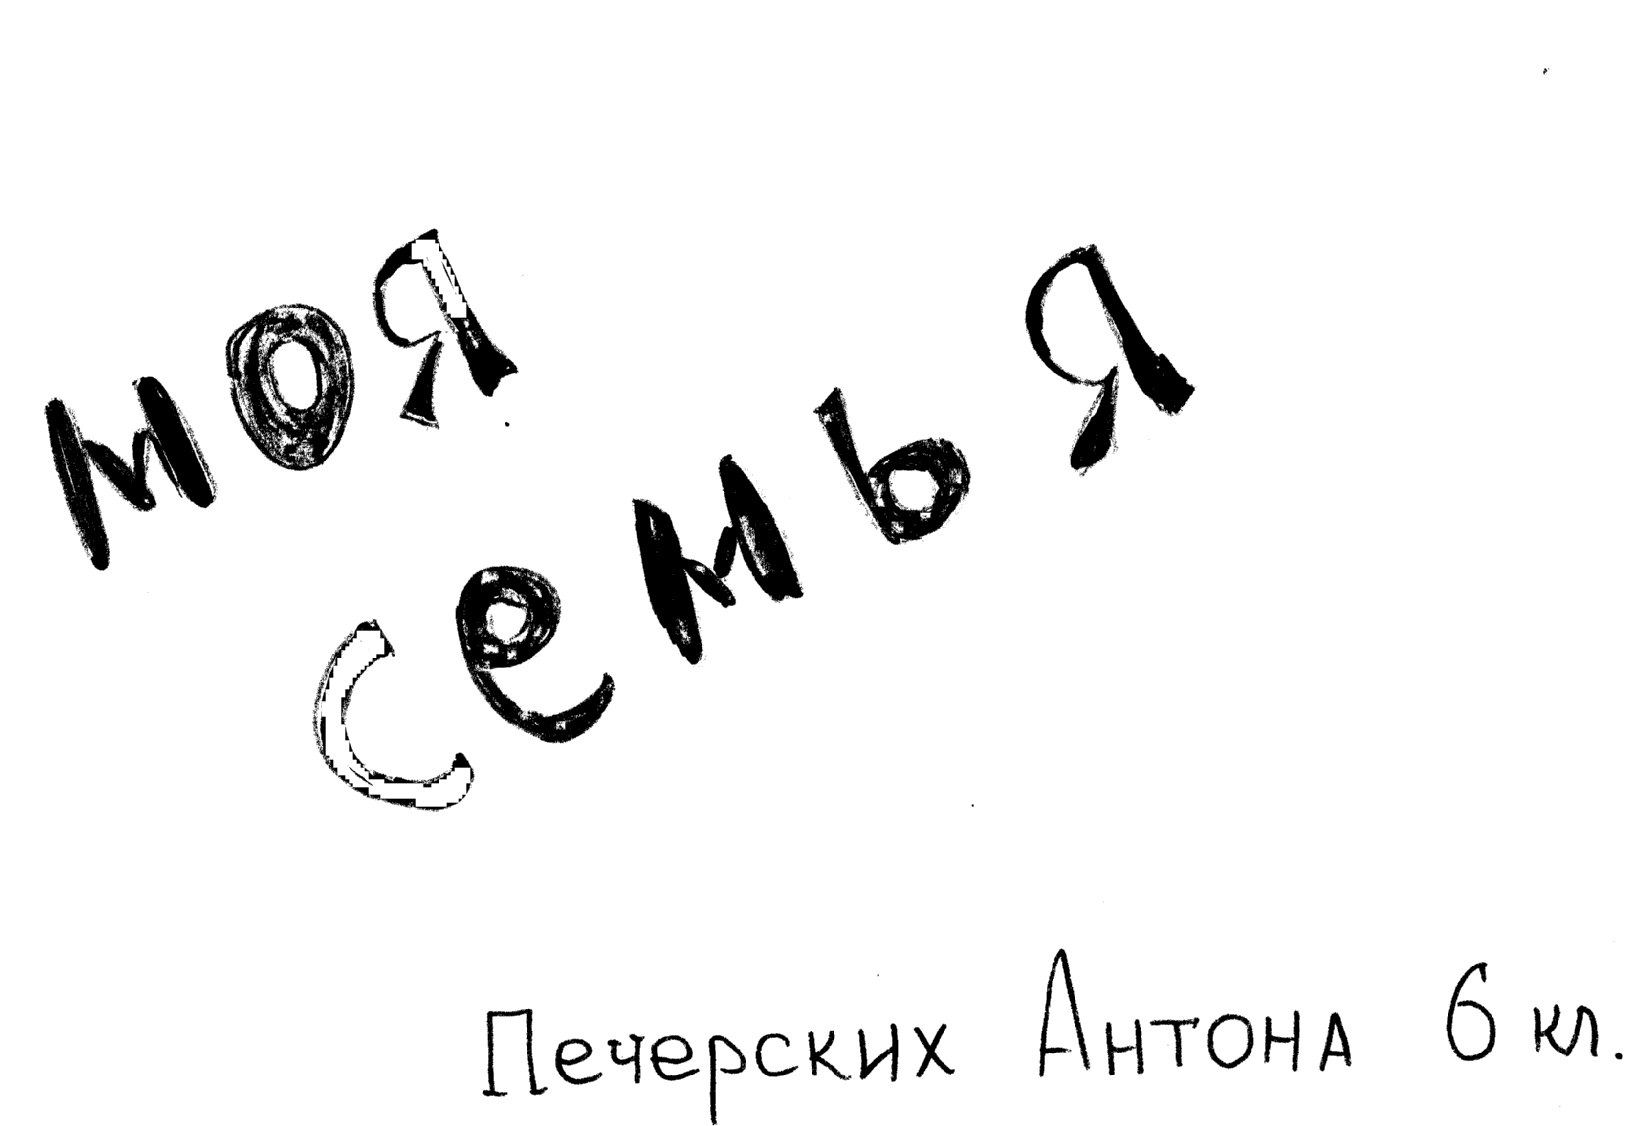 моя
семья
Печерских Антона 6 кл.